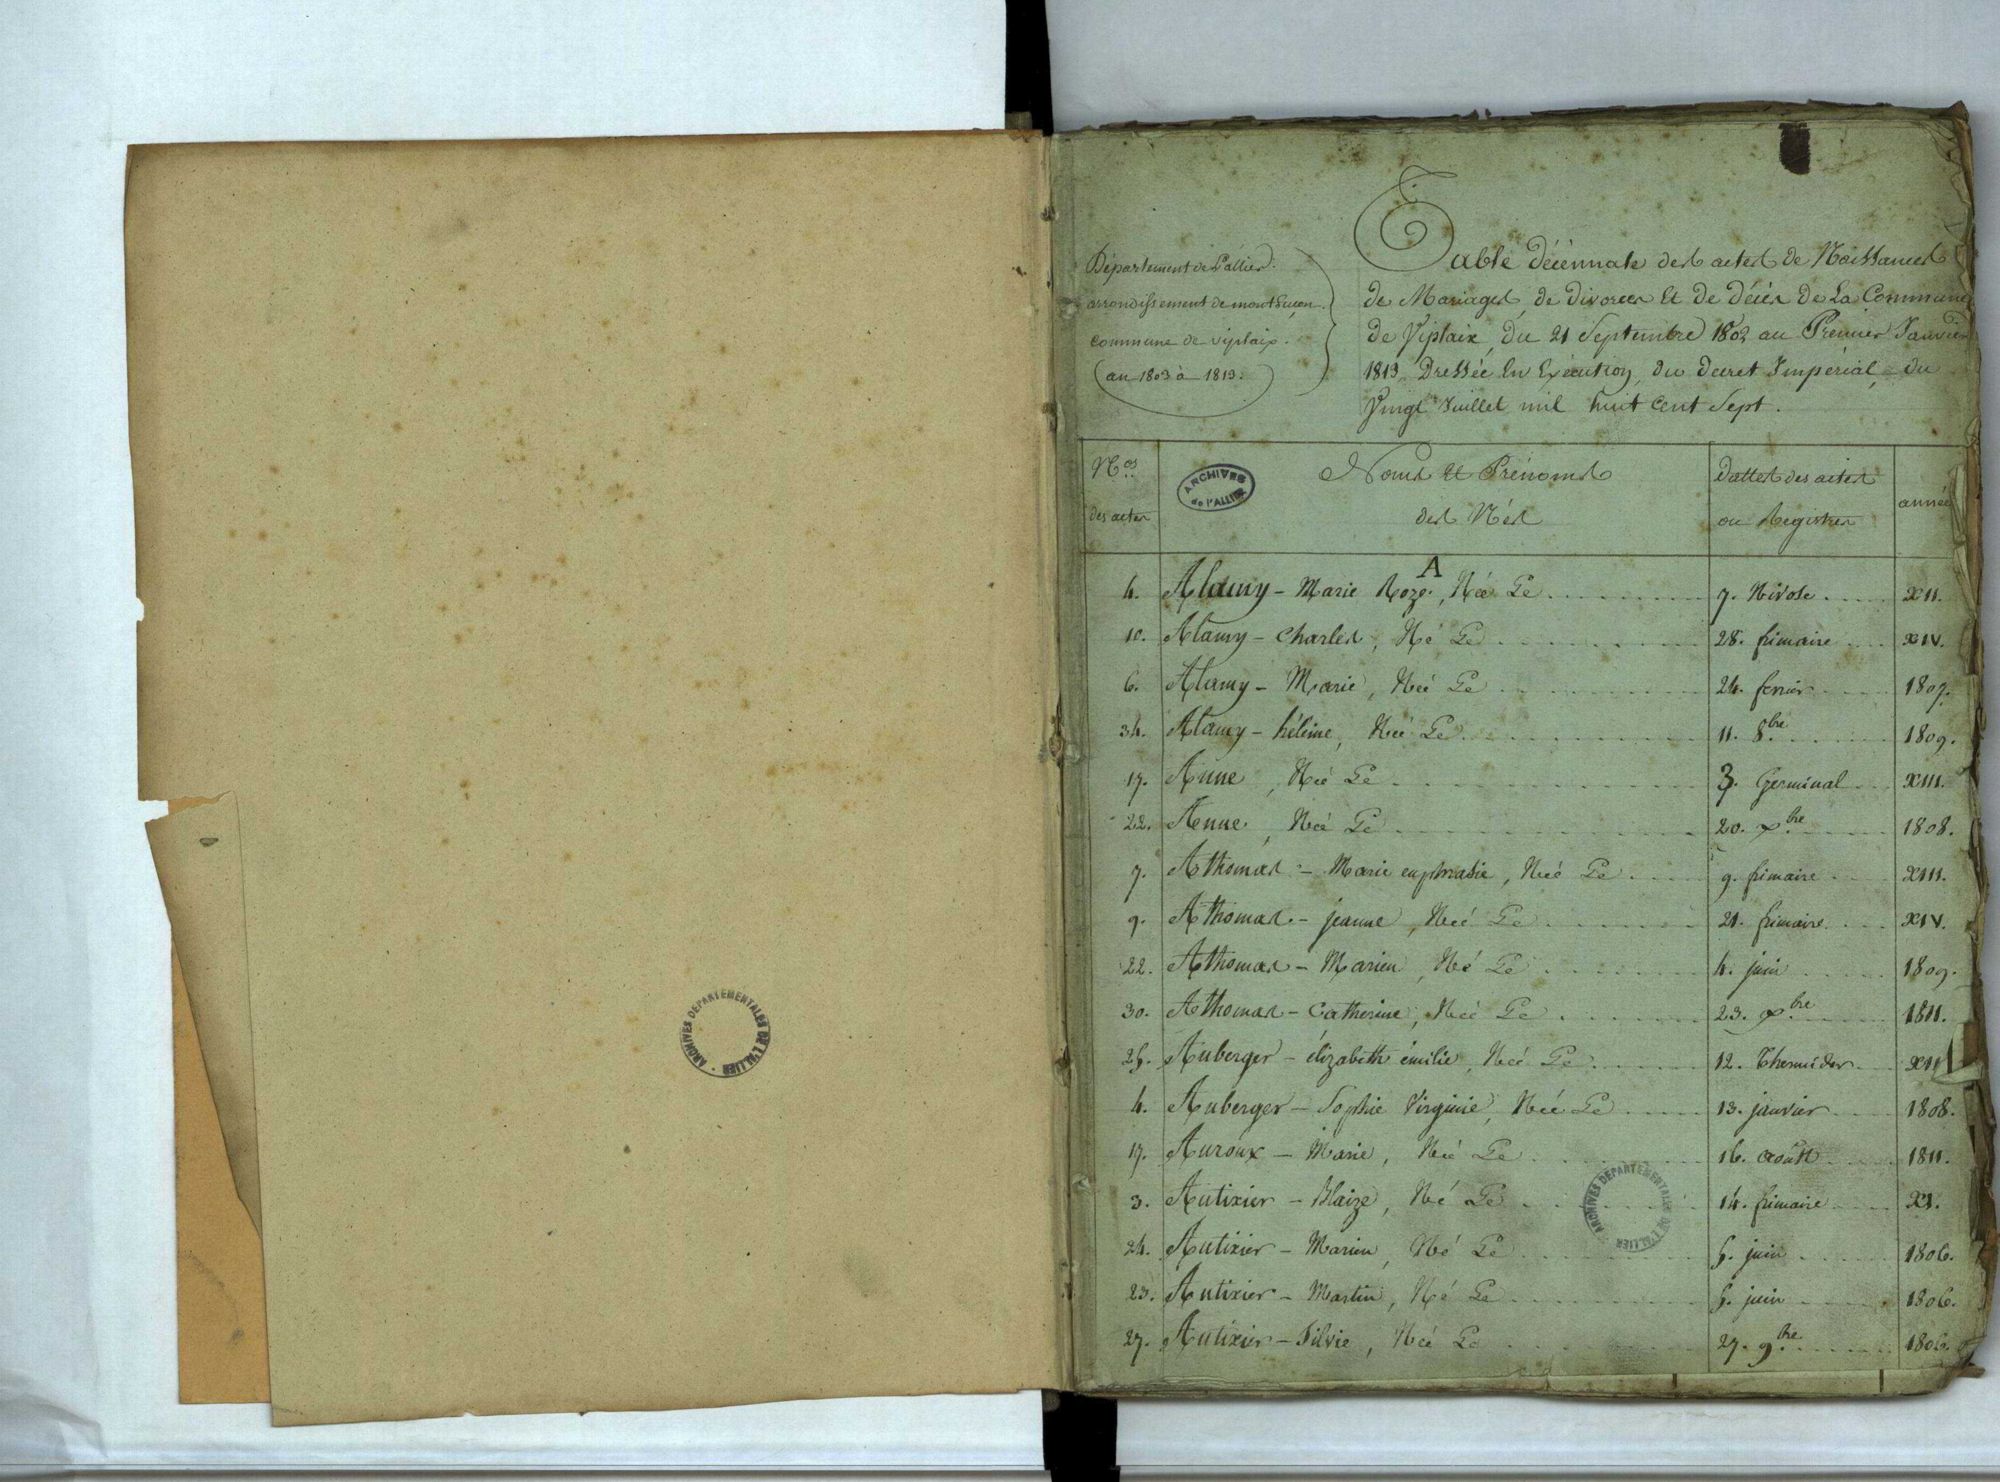 ARCHIVES DEPARTEMENTALES DE L'ALLIER
Département de l'allier.
arrondissement de montluçon.
commune de viplaix.
(an 1803 à 1813.)
Table décennale des actes de Naissances
de Mariages, de divorces Et de décès de La Commune
de Viplaix, du 21 Septembre 1802 au Premier Janvier
1813, Dressée En Exécution, du decret Impérial, du
Vingt Juillet mil huit cent sept.
Nos des actes
ARCHIVES de l'ALLIER
Noms Et Prénoms
des Nés
dattes des actes
ou Registres
année
A
4. Alamy - Marie Roze, Née Le 7. Nivose XII.
10. Alamy - Charles, Né Le 28. frimaire XIV.
6. Alamy - Marie, Née Le 24. fevrier 1807.
34. Alamy - héleine, Née Le 11. 8.bre 1809.
17. Anne, Née Le 3. Germinal XIII.
22. Anne, Née Le 20. xbre 1808.
7. Athomas - Marie euphrasie, Née Le 9. frimaire XIII.
9. Athomas - jeanne, Née Le 21. frimaire XIV.
22. Athomas - Marien, Né Le 4. juin 1809.
30. Athomas - Catherine, Née Le 23. xbre 1811.
25. Auberger - élizabeth émilie, Née Le 12. thermidor XII
4. Auberger - Sophie Virginie, Née Le 13. janvier 1808.
17. Auroux - Marie, Née Le 16. août 1811.
3. Autixier - Blaize, Né Le 14. frimaire XI.
24. Autixier - Marien, Né Le 5. juin 1806.
23. Autixier - Martin, Né Le 5. juin 1806.
27. Autixier - Silvie, Née Le 27. 9.bre 1806.
ARCHIVES DEPARTEMENTALES DE L'ALLIER